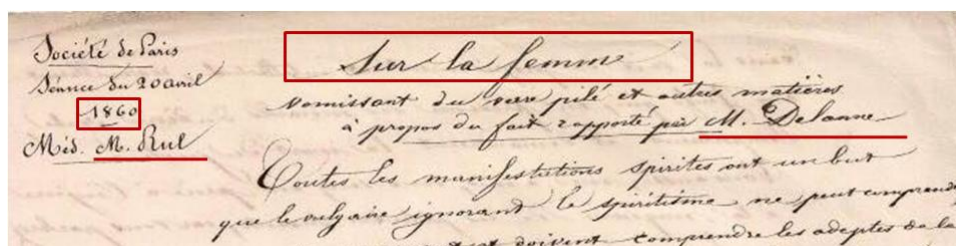 Société de Paris
Séance du 20 avril
1860
Méd. M. Rul
Sur la femme
vomissant du verre pilé et autres matières
à propos du fait rapporté par M. Delanne
Toutes les manifestations spirites ont un but
que le vulgaire ignorant le spiritisme ne peut comprendre
doivent comprendre les adeptes de la